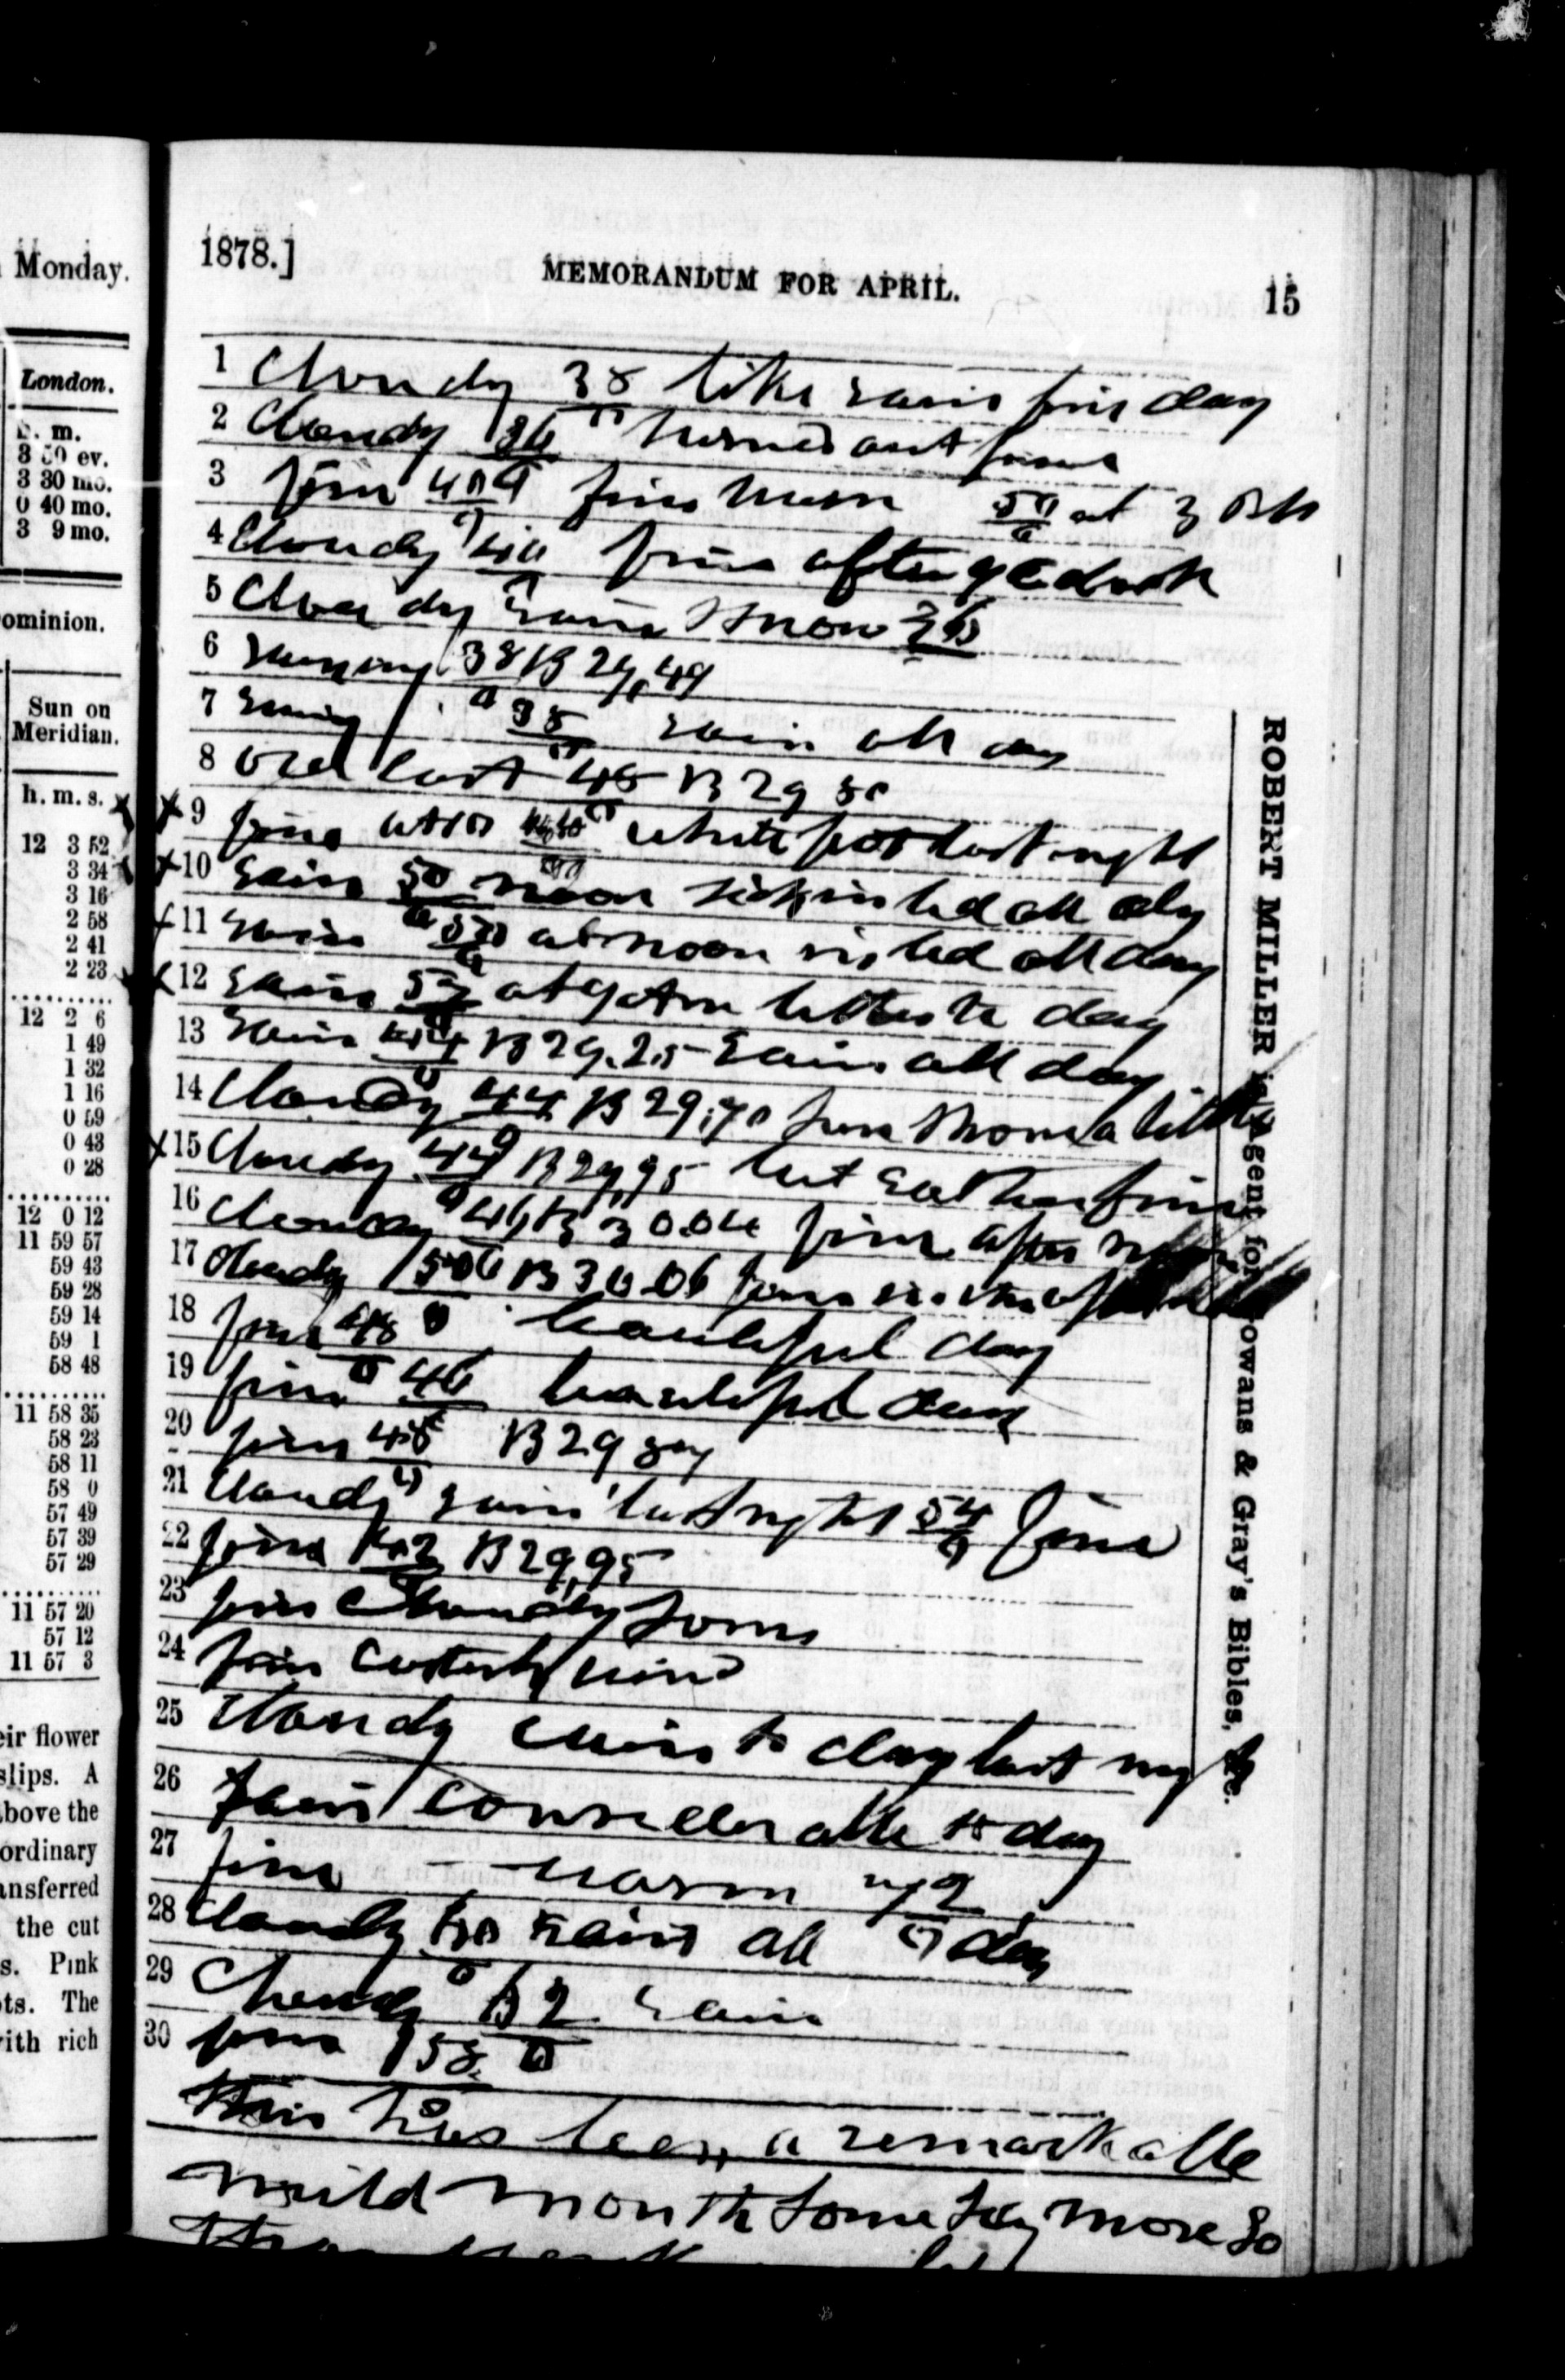 Monday.
London.
h. m.
3 50 ev.
3 30 mo.
0 40 mo.
3 9 mo.
ominion.
Sun on
Meridian.
h. m. s.
12 3 52
3 34
3 16
2 58
2 41
2 23
12 2 6
1 49
1 32
1 16
0 59
0 43
0 28
12 0 12
11 59 57
59 43
59 28
59 14
59 1
58 48
11 58 35
58 23
58 11
58 0
57 49
57 39
57 29
11 57 20
57 12
11 57 3
eir flower
slips. A
bove the
ordinary
ansferred
the cut
s. Pink
ts. The
ith rich
1878.]
MEMORANDUM FOR APRIL.
15
1 Cloudy 38 like rain fine day
2 Cloudy 36 turned out fine
3 fine fine 50 at 3
4 Cloudy 40 fine after
5 Cloudy rain snow 36
6 38 B 29,49
7 38 rain all day
8 last 48 B 29 80
9 fine white frost last night
10 Rain 50 noon sick in bed all day
11 Rain 50 at noon in bed all day
12 Rain 52 at 9 better to day
13 Rain 44 B 29.25 Rain all day
14 Cloudy 44 B 29.70 Sun shone a little
15 Cloudy 44 B 29,95 but rather fine
16 Cloudy 46 B 30.04 fine after
17 Cloudy 50 B 30.06 fine
18 fine 48 beautiful day
19 fine 46 beautiful day
20 fine 48 B 29
21 Cloudy rain last night 54 fine
22 fine B 29,95
23 fine Cloudy some
24 fine wind
25 Cloudy rain to day last night
26 Rain considerable to day
27 fine warm 72
28 Cloudy 60 rain all day
29 Cloudy 62 rain
30 fine 58
this has been a remarkable
mild month some say more so
ROBERT MILLER is Agent for owans & Gray's Bibles, &c.